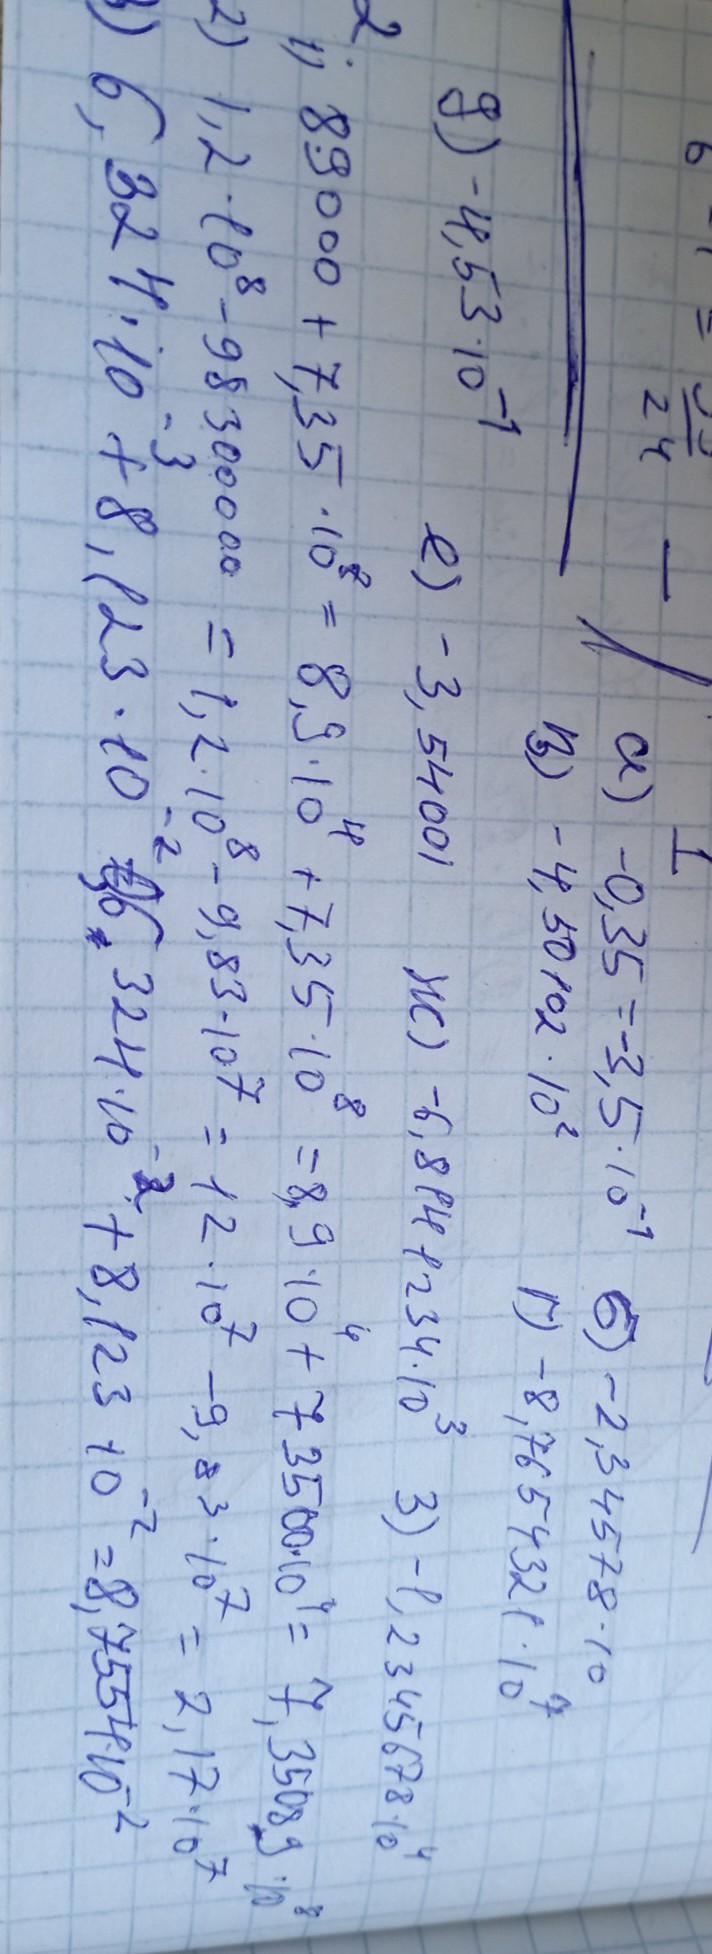 24
1
а) -0,35 = -3,5·10⁻¹ б) -2,34578·10
в) -4,50102·10² г) -8,7654321·10⁷
д) -4,53·10⁻¹ е) -3,54001 ж) -6,8141234·10³ з) -1,2345678·10⁴
2
1) 89000 + 7,35·10⁸ = 8,9·10⁴ + 7,35·10⁸ = 8,9·10⁴ + 73500·10⁴ = 7,35089·10⁸
2) 1,2·10⁸ - 98300000 = 1,2·10⁸ - 9,83·10⁷ = 12·10⁷ - 9,83·10⁷ = 2,17·10⁷
3) 6,324·10⁻³ + 8,123·10⁻² 6,324·10⁻² + 8,123·10⁻² = 8,7554·10⁻²